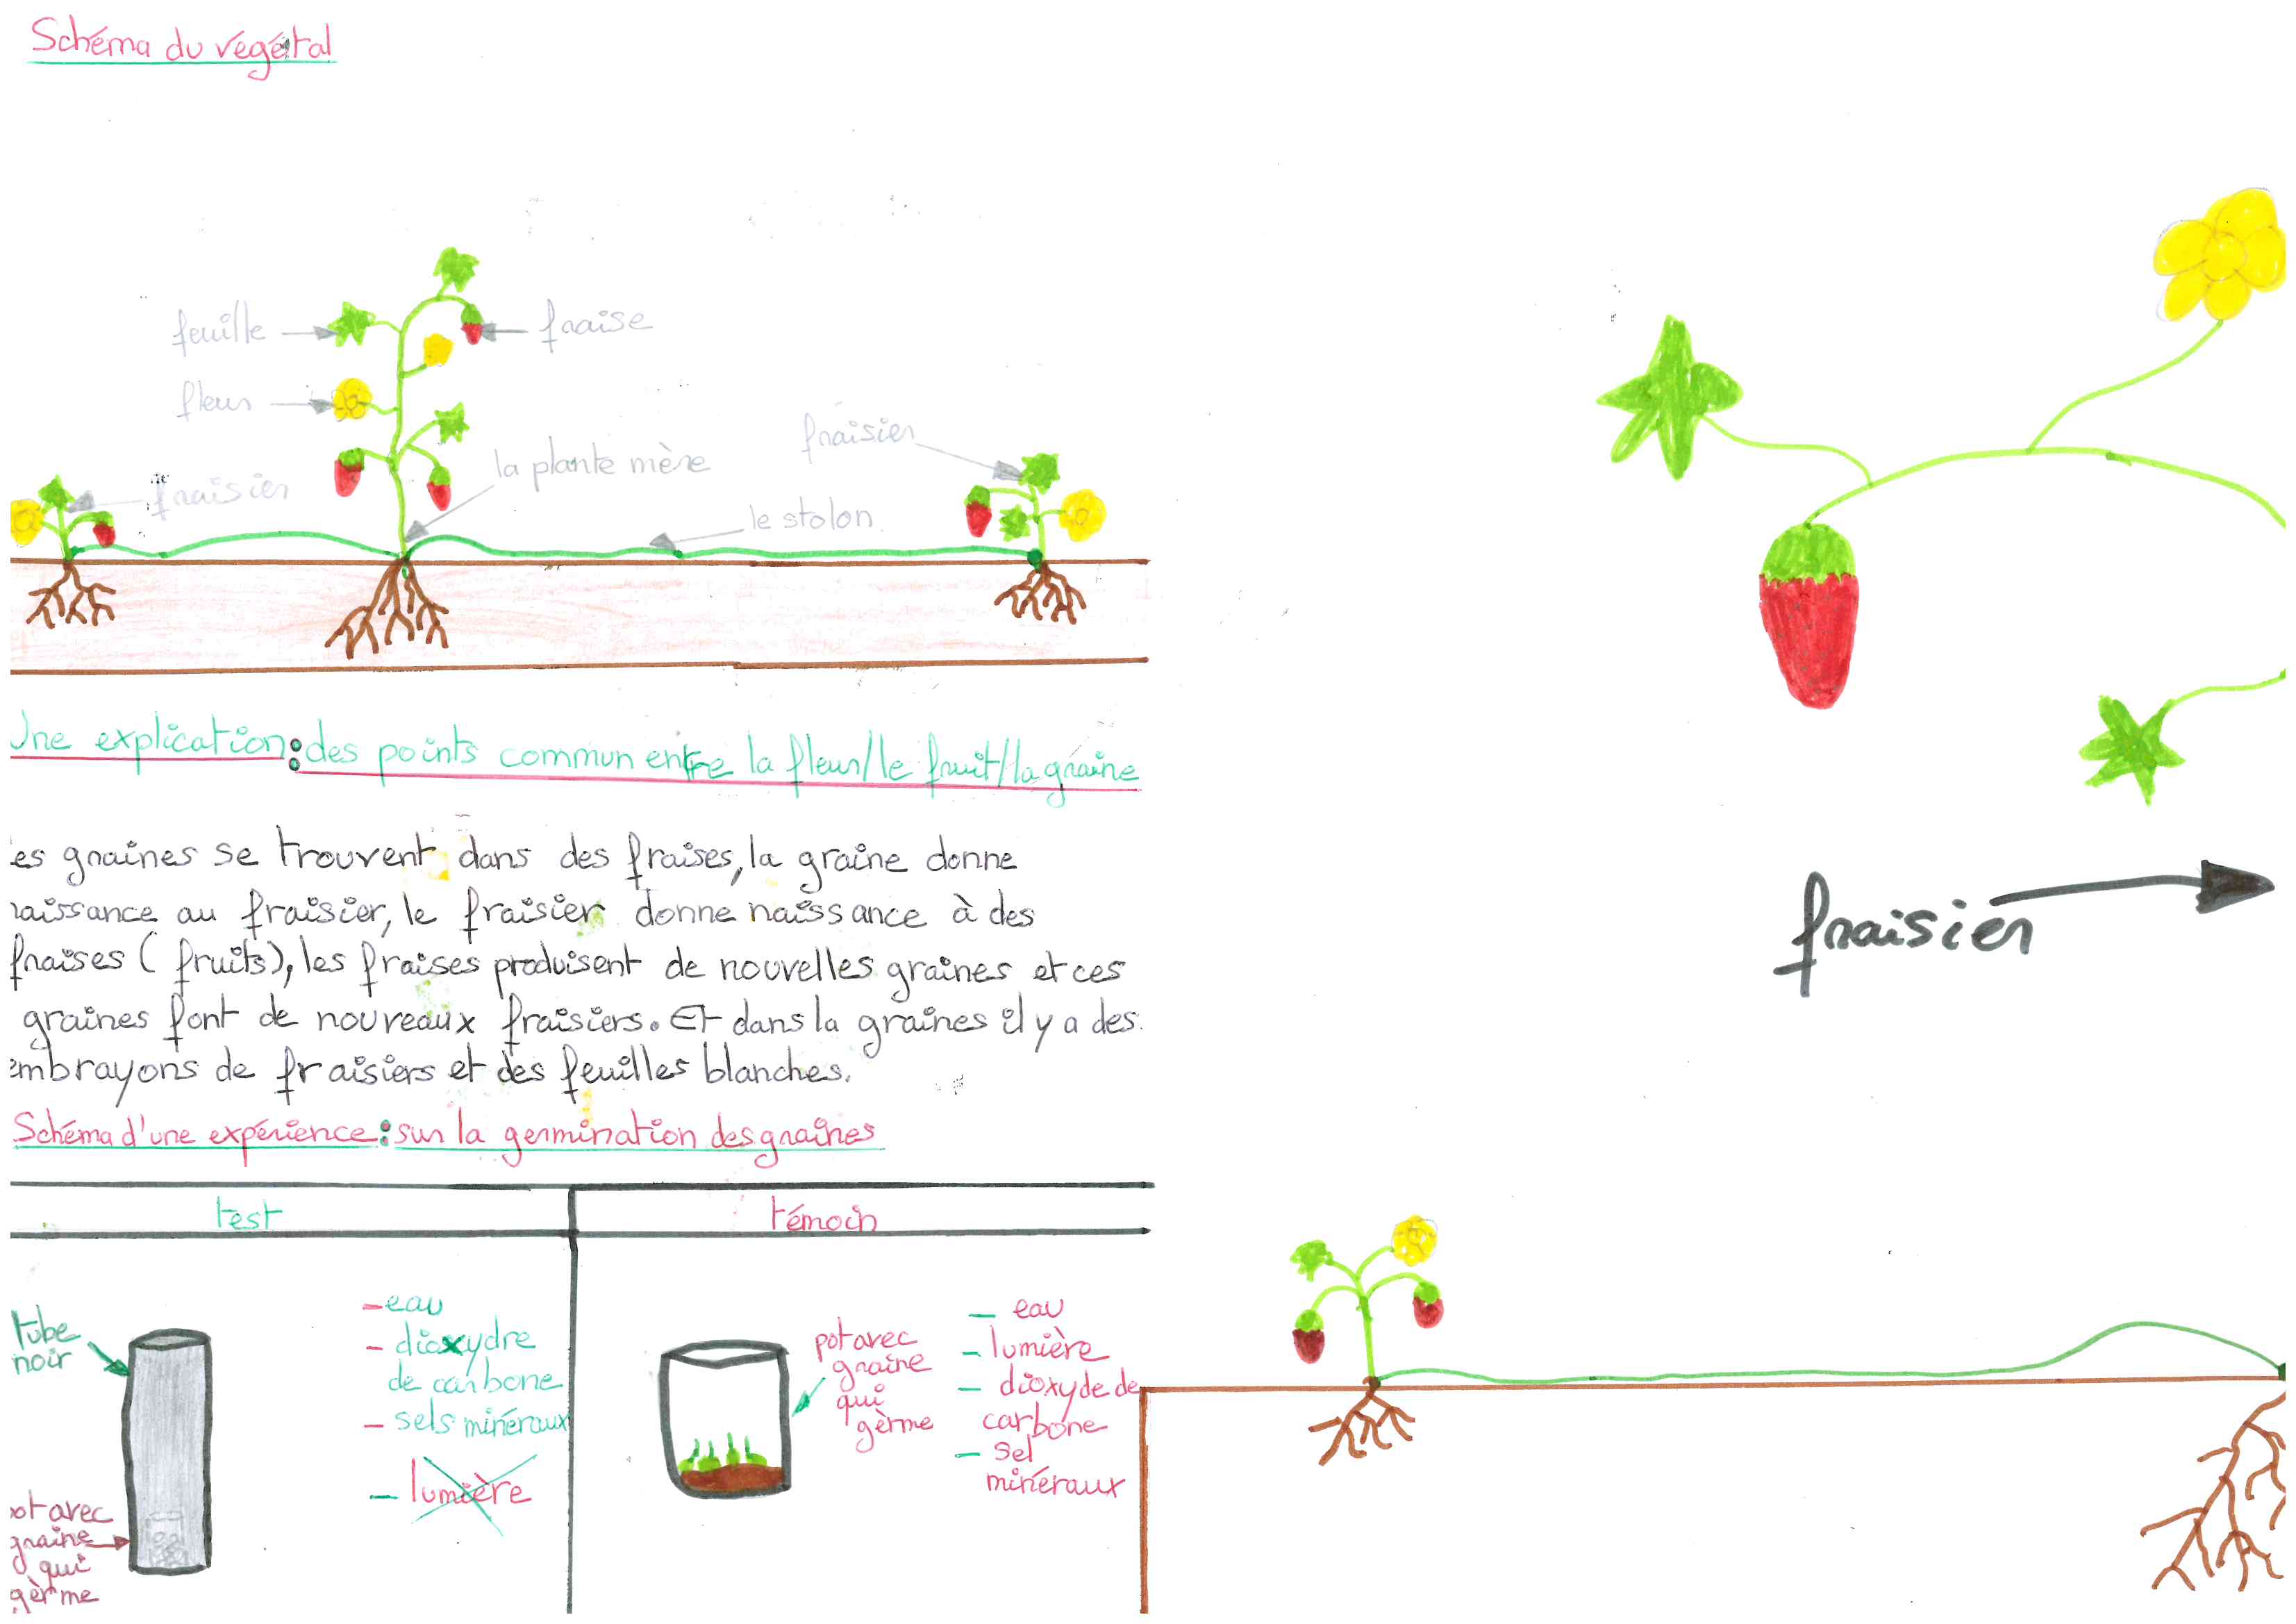 Schéma du végétal
feuille
fraise
fleur
fraisier
la plante mère
fraisier
le stolon
Une explication: des points commun entre la fleur/le fruit/la graine
es graines se trouvent dans des fraises, la graine donne
naissance au fraisier, le fraisier donne naissance à des
fraises (fruits), les fraises produisent de nouvelles graines et ces
graines font de nouveaux fraisiers. Et dans la graines il y a des
embrayons de fraisiers et des feuilles blanches.
fraisier
Schéma d'une expérience: sur la germination des graines
test
témoin
tube
noir
pot avec
graine
qui
gèrme
- eau
- dioxydre
de carbone
- sels minéraux
- lumière
pot avec
graine
qui
gèrme
- eau
- lumière
- dioxyde de
carbone
- sel
minéraux